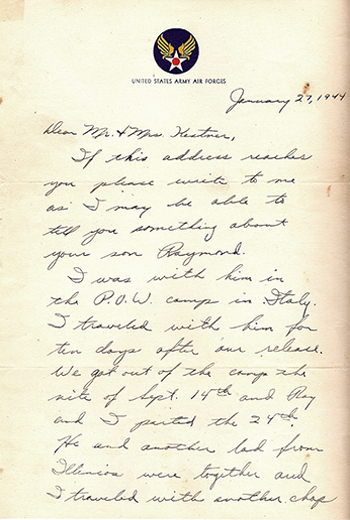 UNITED STATES ARMY AIR FORCES
January 27, 1944
Dear Mr. & Mrs. Kestner,
If this address reaches
you please write to me
as I may be able to
tell you something about
your son Raymond.
I was with him in
the P.O.W. camp in Italy.
I traveled with him for
ten days after our release.
We got out of the camp the
nite of Sept. 14th and Ray
and I parted the 24th.
He and another lad from
Illinois were together and
I traveled with another chap